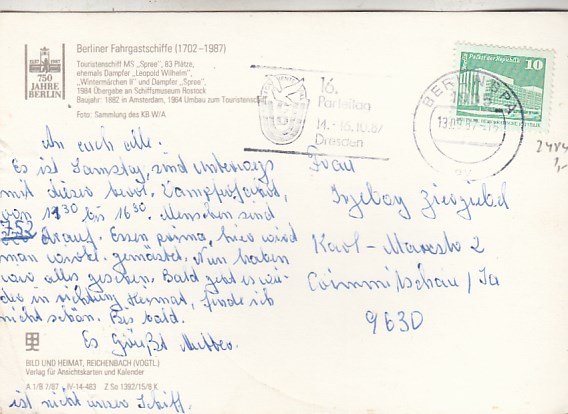 Berliner Fahrgastschiffe (1702–1987)
Touristenschiff MS „Spree", 83 Plätze,
ehemals Dampfer „Leopold Wilhelm",
„Wintermärchen II" und Dampfer „Spree",
1984 Übergabe an Schiffsmuseum Rostock
Baujahr: 1882 in Amsterdam, 1964 Umbau zum Touristensch
Foto: Sammlung des KB W/A
1237 1987
750
JAHRE
BERLIN
16.
Parteitag
14.-16.10.87
Dresden
Palast der Republik
10
BERLIN BPA
1085
13.09.87
ay
An euch alle.
Es ist Samstag, sind unterwegs
mit dieser Dampferfahrt,
von 11 30 bis 16 30. Menschen sind
752 drauf. Essen prima, hier wird
man gemästet. Nun haben
wir alles gesehen. Bald geht es wie-
der in richtung Heimat, finde ich
nicht schön. Bis bald.
Es Grüßt Mutter.
Frau
Ingeborg Ziergiebel
Karl-Marxstr 2
Crimmitschau / Sa
9630
BILD UND HEIMAT, REICHENBACH (VOGTL.)
Verlag für Ansichtskarten und Kalender
A 1/B 7/87 IV-14-483 Z So 1392/15/9 K
ist nicht unser Schiff.